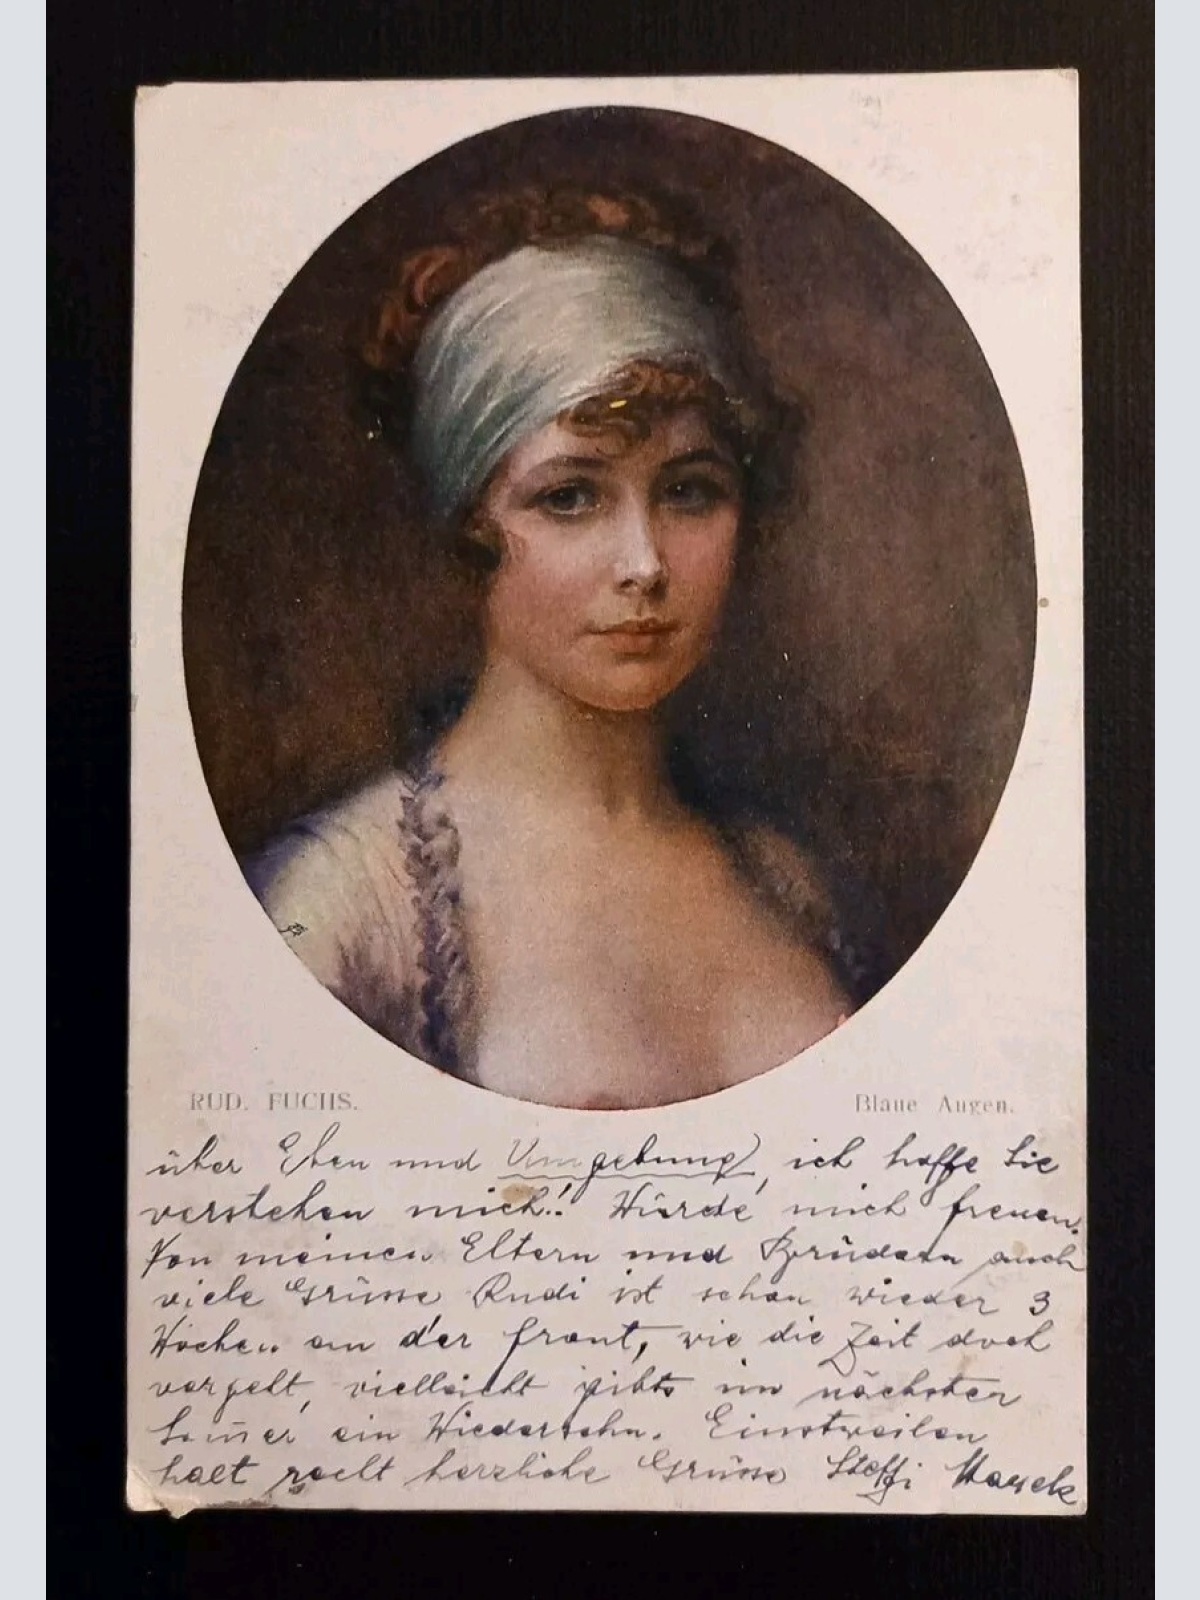 RUD. FUCHS.
Blaue Augen.
über Eben und Umgebung, ich hoffe Sie
verstehen mich!! Würde mich freuen.
Von meinen Eltern und Brüdern auch
viele Grüsse Rudi ist schon wieder 3
Wochen an der Front, wie die Zeit doch
vergeht, vielleicht gibts im nächsten
Som̄er ein Wiedersehn. Einstweilen
halt recht herzliche Grüsse Steffi